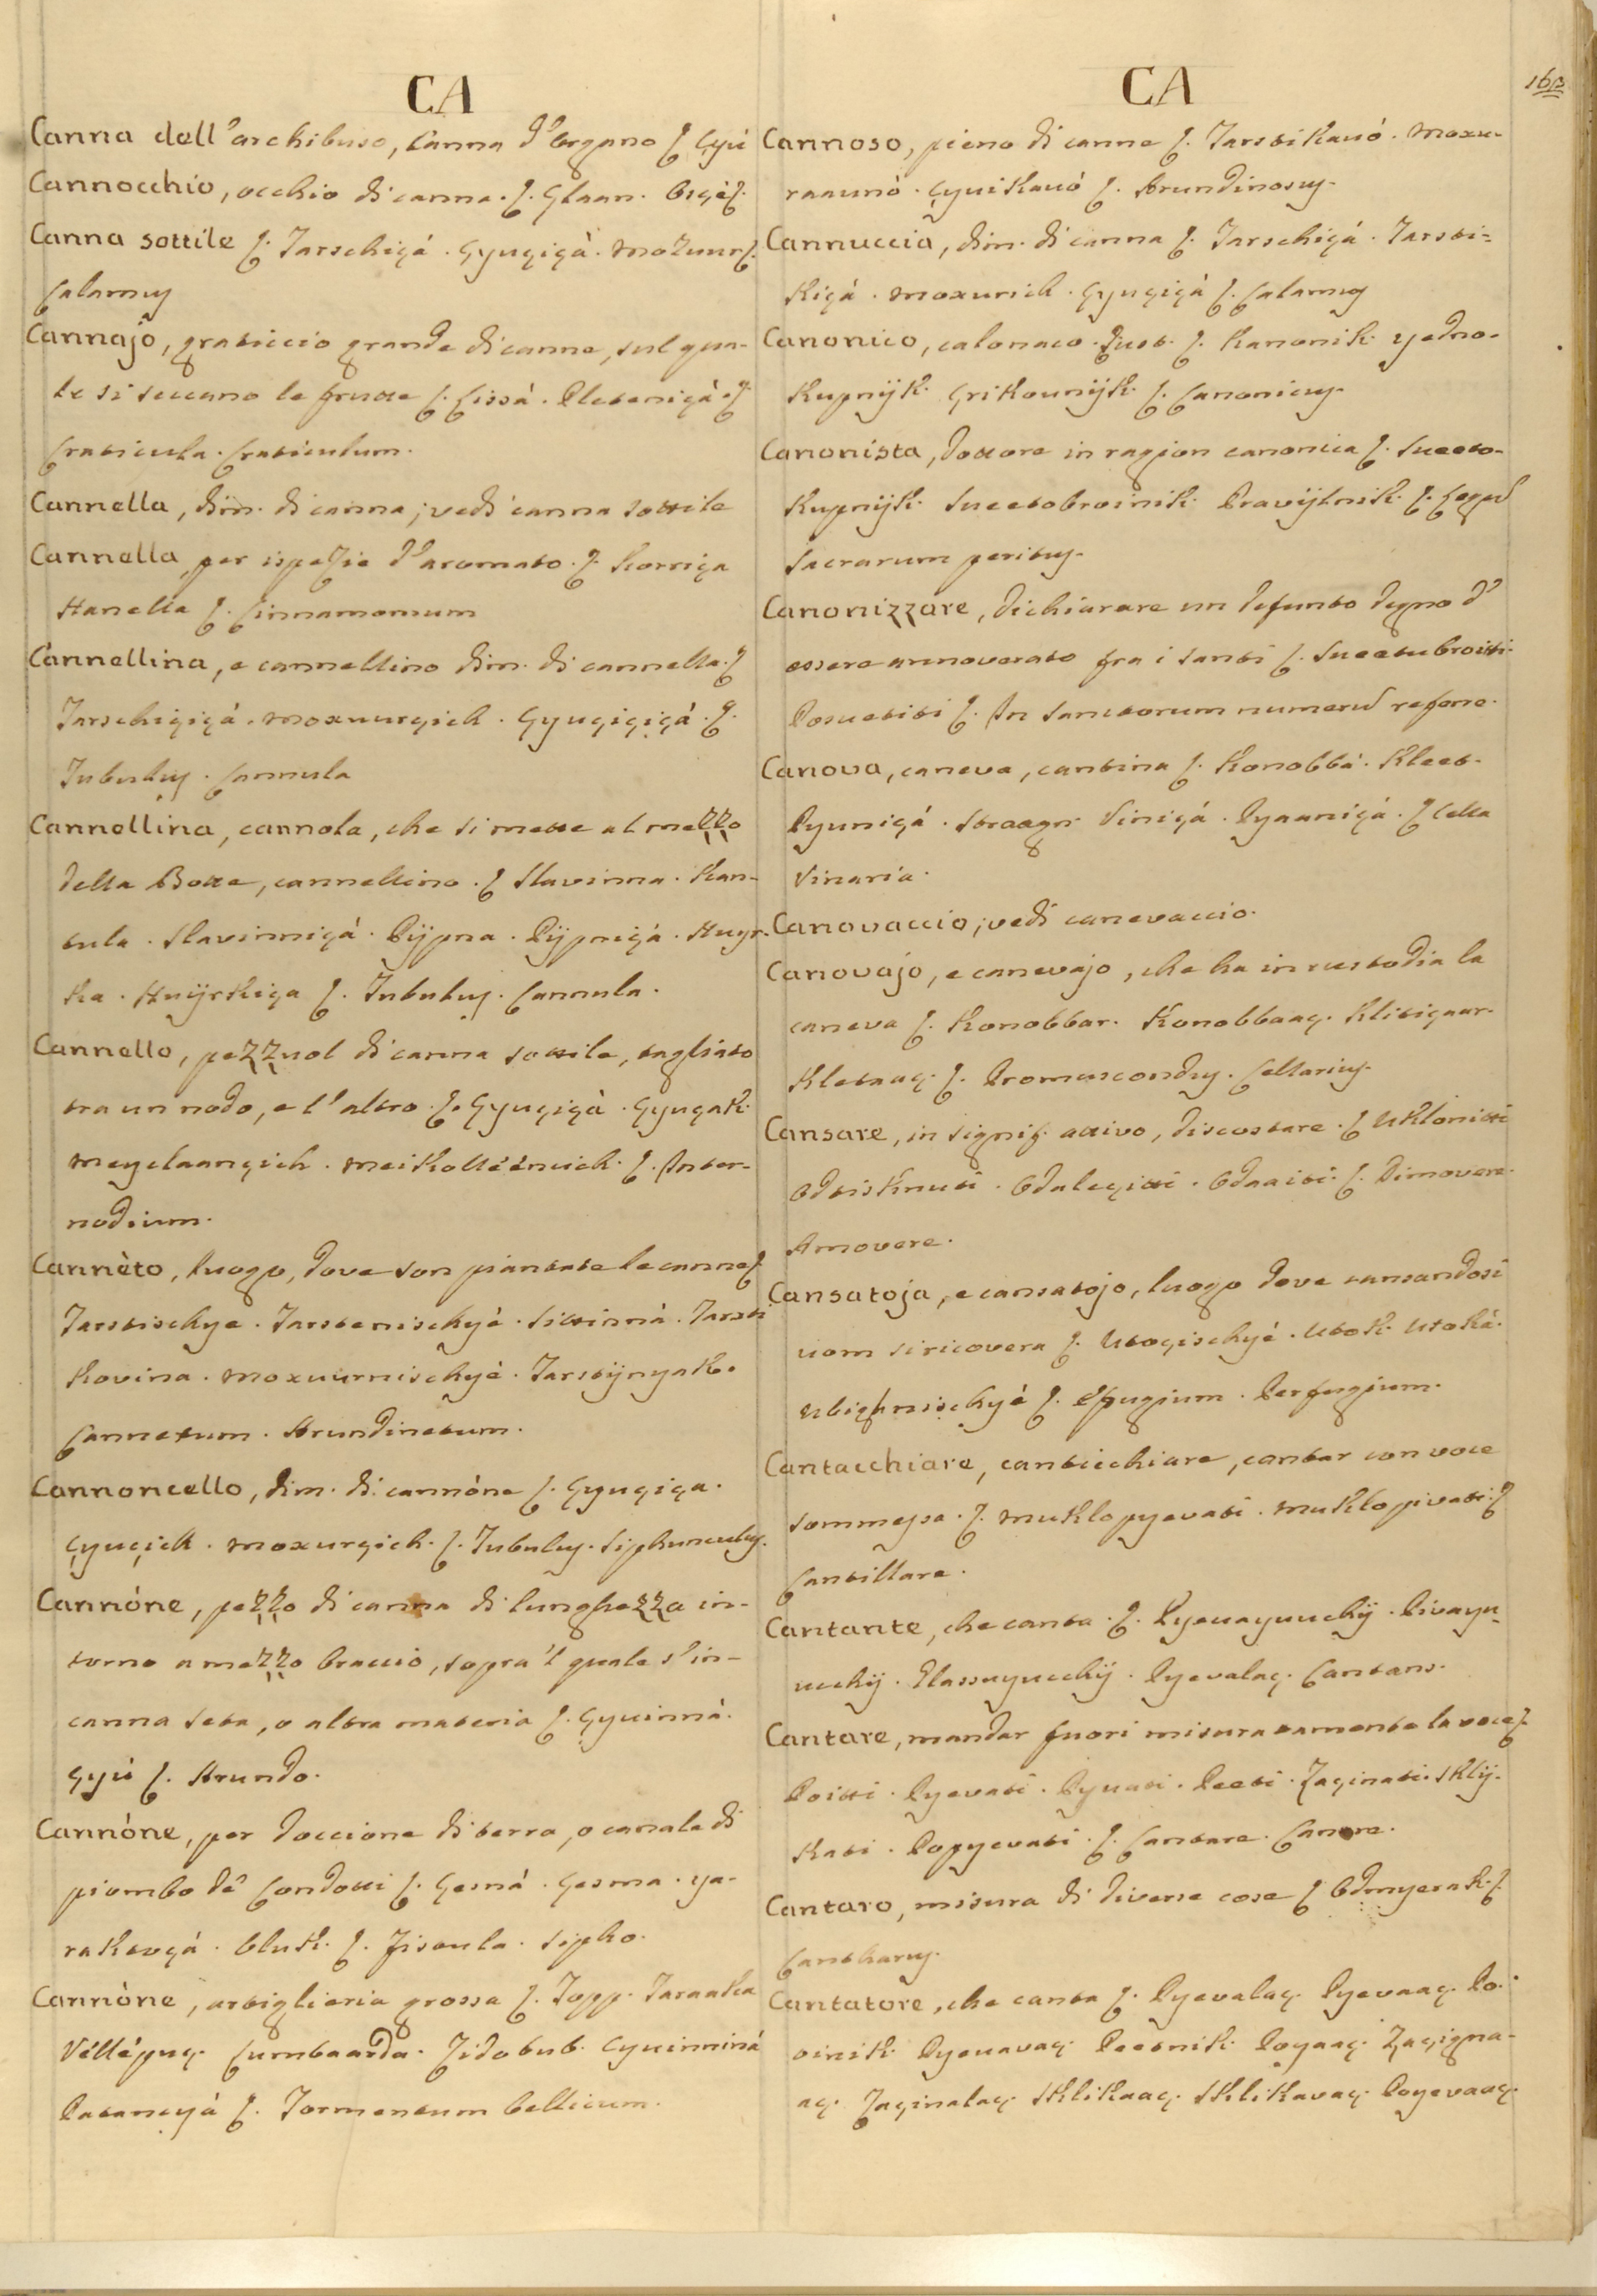 CA
Canna dell'archibuso, Canna d'Organo ſ. Çyú
Cannocchio, occhio di canna. ſ. Glaan. Osçèſ.
Canna sottile ſ. Tarschiçá. Çyuçiçà. Moxuurſ.
Calamuſ
Cannajo, graticcio grande di canne, sul qua-
le si seccano le frutte ſ. Lissà. Pleteniçà. ſ.
Craticula. Craticulum.
Cannella, dim. di canna; vedi canna sottile
Cannella, per ispezie d'aromato. ſ. Korriça
Kanella ſ. Cinnamomum
Cannellina, e cannellino dim. di cannella. ſ.
Tarschiçiçá. Moxuurçich. Çyuçiçiçá. ſ.
Tubuluſ. Cannula
Cannellina, cannola, che si mette al mezzo
della Botte, cannellino. ſ. Slavinna. Kan-
nula. Slavinniçá. Pijpna. Pijpniçá.
ka. ſ. Tubuluſ. Cannula.
Cannello, pezzuol di canna sottile, tagliato
tra un nodo, e l'altro. ſ. Çyuçiçà. Çyuçak.
ſ. Inter-
nodium.
Cannèto, luogo, dove son piantate le canneſ.
Tarstischye. Tarstenischyè. Sittinná. Tarsti
kovina. Moxuurnischyè. Tarstijnyak.
Cannetum. Arundinetum.
Cannoncello, dim. di cannòne ſ. Çyuçiça.
Çyuçich. Moxurçich. ſ. Tubuluſ. Siphunculuſ.
Cannòne, pezzo di canna di lunghezza in-
torno a mezzo braccio, sopra 'l quale s'in-
canna seta, o altra materia ſ. Çyuinná.
Çyú ſ. Arundo.
Cannòne, per doccione di terra, o canale di
piombo de' Condotti ſ. Çesná. Çesma. ya-
ſ. Fistula. Sipho.
Cannòne, artiglieria grossa ſ. Topp. Taraaka
Vèllépuç. Lumbaarda. Zidotub. Çyuinniná
Patancyá ſ. Tormentum bellicum.
CA
163
Cannoso, pieno di canne ſ. Tarstikauó. Moxu-
raaunò. Çyuikauó ſ. Arundinosuſ.
Cannuccia, dim. di canna ſ. Tarschiçá. Tarsti-
kiçá. Moxurich. Çyuçiçà ſ. Calamuſ
Canonico, calonaco. Sust. ſ. Kanonik. yedno-
kupnijk. Grikounijk. ſ. Canonicuſ.
Canonista, dottore in ragion canonica ſ. Sueeto-
kupnijk. Sueetobroinik. Pravijlnik. ſ. Legum
sacrarum perituſ.
Canonizzare, dichiarare un defunto degno d'
essere annoverato fra i santi ſ. Sueetubroitti.
Posuetiti ſ. In sanctorum numerum referre.
Canova, caneva, cantina ſ. Konobbá. Kleet.
Pyuniçá. Straagn. Viniçá. Pyaaniçá. ſ. Cella
Vinaria.
Canovaccio; vedi canevaccio.
Canovajo, e canevajo, che ha in custodia la
caneva ſ. Konobbar. Konobbaaç. Klitiçaar.
Kletaaç. ſ. Promuſconduſ. Cellariuſ.
Cansare, in signif. attivo, discostare. ſ. Uklonitti
Odtisknuti. Odaleçitti. Odaaiti. ſ. Dimovere.
Amovere.
Cansatoja, e cansatojo, luogo dove cansandosi
uom si ricovera ſ. Utoçischyé. Utok. Utoká.
Ubighnischyé ſ. Effugium. Perfugium.
Cantacchiare, canticchiare, cantar con voce
sommeſsa. ſ. Muklopyevati. Muklopivati. ſ.
Cantillare.
Cantante, che canta. ſ. Pyeuayuuchij. Pivayu-
ucchij. Glassuyucchij. Pyevalaç. Cantans.
Cantare, mandar fuori misuratamente la voceſ.
Poitti. Pyevati. Pyuati. Peeti. Zaçinati. Sklij-
kati. Popyevati. ſ. Cantare. Canere.
Cantaro, misura di diverse cose ſ. Odmyerak. ſ.
Cantharuſ.
Cantatore, che canta ſ. Pyevalaç. Pyevaaç. Po-
oinik. Pyeuavaç. Peetnik. Poyaaç. Zaçigna-
aç. Zaçinalaç. Sklikaaç. Sklikavaç. Poyevaaç.